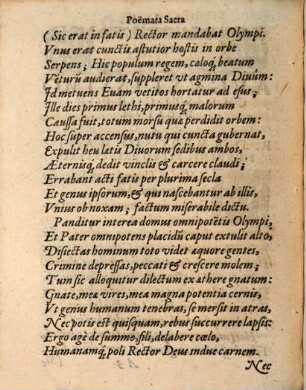 Poëmata Sacra
(Sic erat in fatis) Rector mandabat Olympi.
Vnus erat cunctis astutior hostis in orbe
Serpens; Hic populum regem, cæloq́; beatum
Vēturū audierat, suppleret vt agmina Diuûm:
Id metuens Euam vetitos hortatur ad esus;
Ille dies primus lethi, primusq́; malorum
Caussa fuit, totum morsu quæ perdidit orbem:
Hoc super accensus, nutu qui cuncta gubernat,
Expulit heu latis Diuorum sedibus ambos,
Æternisq́; dedit vinclis & carcere claudi;
Errabant acti fatis per plurima secla
Et genus ipsorum, & qui nascebantur ab illis,
Vnius ob noxam; factum miserabile dictu.
Panditur interea domus omnipotētis Olympi,
Et Pater omnipotens placidū caput extulit alto,
Disiectas hominum toto videt æquore gentes,
Crimine depressas, peccati & crescere molem;
Tum sic alloquitur dilectum ex æthere gnatum:
Gnate, meæ vires, mea magna potentia cernis,
Vt genus humanum tenebras, se mersit in atras,
Nec potis est quisquam, rebus succurrere lapsis:
Ergo agè de summo, fili, delabere cœlo,
Humanamq́; poli Rector Deus indue carnem.
Nec